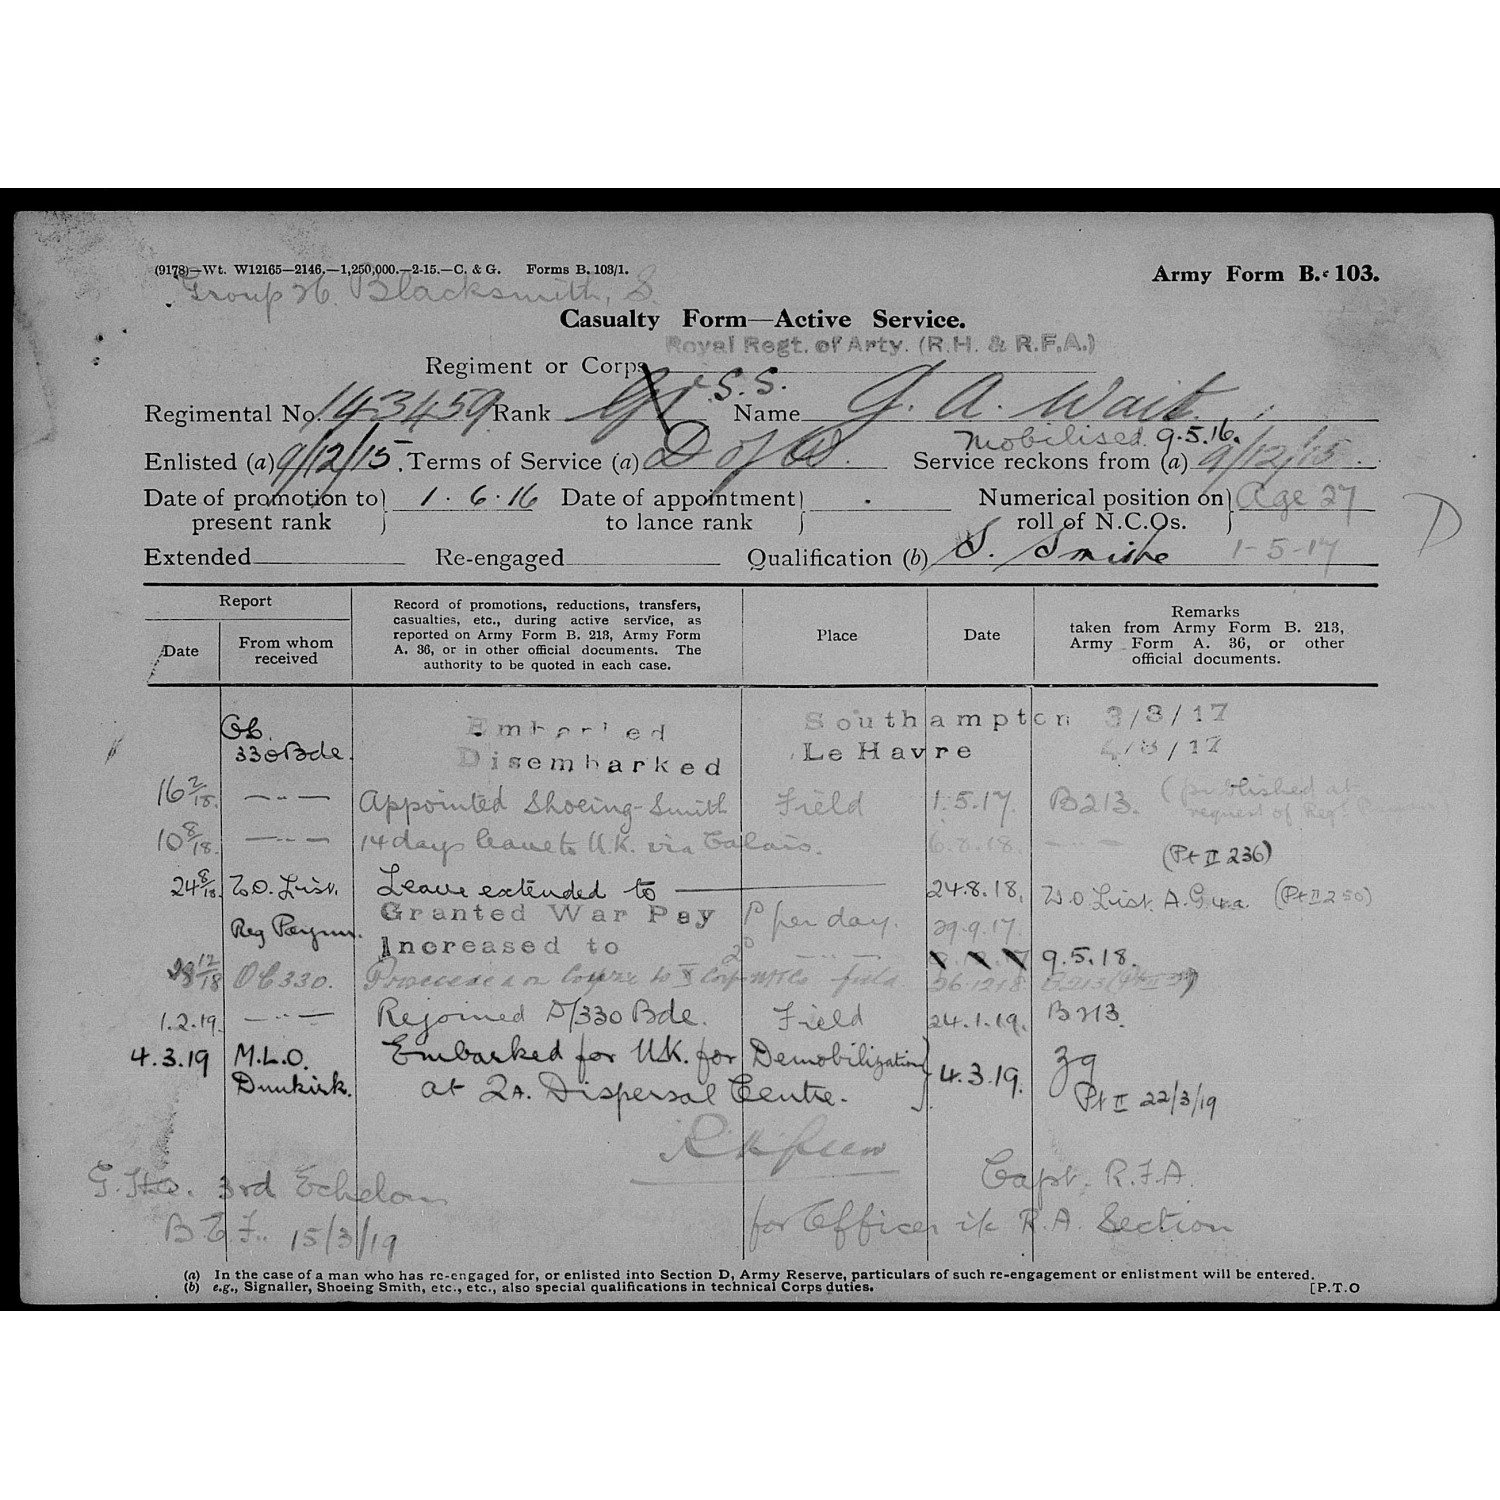 (9178)—Wt. W12165—2146.—1,250,000.—2-15.—C. & G. Forms B. 103/1.
Army Form B. 103.
Group 26. Blacksmith, S.
Casualty Form—Active Service.
Royal Regt. of Arty. (R.H. & R.F.A.)
Regiment or Corps
Regimental No. 143459 Rank Gr S.S. Name G. A. Wait
Mobilised 9.5.16.
Enlisted (a) 9/12/15. Terms of Service (a) D of W. Service reckons from (a) 9/12/15.
Date of promotion to present rank 1.6.16 Date of appointment to lance rank Numerical position on roll of N.C.Os. Age 27
D
Extended Re-engaged Qualification (b) S. Smith 1-5-17
Report
Date From whom received
Record of promotions, reductions, transfers, casualties, etc., during active service, as reported on Army Form B. 213, Army Form A. 36, or in other official documents. The authority to be quoted in each case.
Place
Date
Remarks taken from Army Form B. 213, Army Form A. 36, or other official documents.
Embarked Southampton 3/8/17
330 Bde. Disembarked Le Havre 4/8/17
16 2/18. —"— Appointed Shoeing-Smith Field 1.5.17. B213. (published at request of Regt.
10 8/18. —"— 14 days leave to U.K. via Calais. 6.8.18. —"— (Pt II 236)
24 8/18. W.O. List. Leave extended to 24.8.18. W.O List A.G.4a. (Pt II 250)
Reg Paymr. Granted War Pay 1d per day. 29.9.17.
Increased to 2d —"— 9.5.18.
28 12/18 OC 330. to X Corps field 26.12.18 B213
1.2.19. —"— Rejoined D/330 Bde. Field 24.1.19. B213.
4.3.19 M.L.O. Dunkirk. Embarked for U.K. for Demobilization at 2A. Dispersal Centre. 4.3.19. Pt II 22/3/19
G.H.Q. 3rd Echelon Capt. R.F.A.
B.E.F. 15/3/19 for Officer i/c R.A. Section
(a) In the case of a man who has re-engaged for, or enlisted into Section D, Army Reserve, particulars of such re-engagement or enlistment will be entered.
(b) e.g., Signaller, Shoeing Smith, etc., etc., also special qualifications in technical Corps duties.
[P.T.O